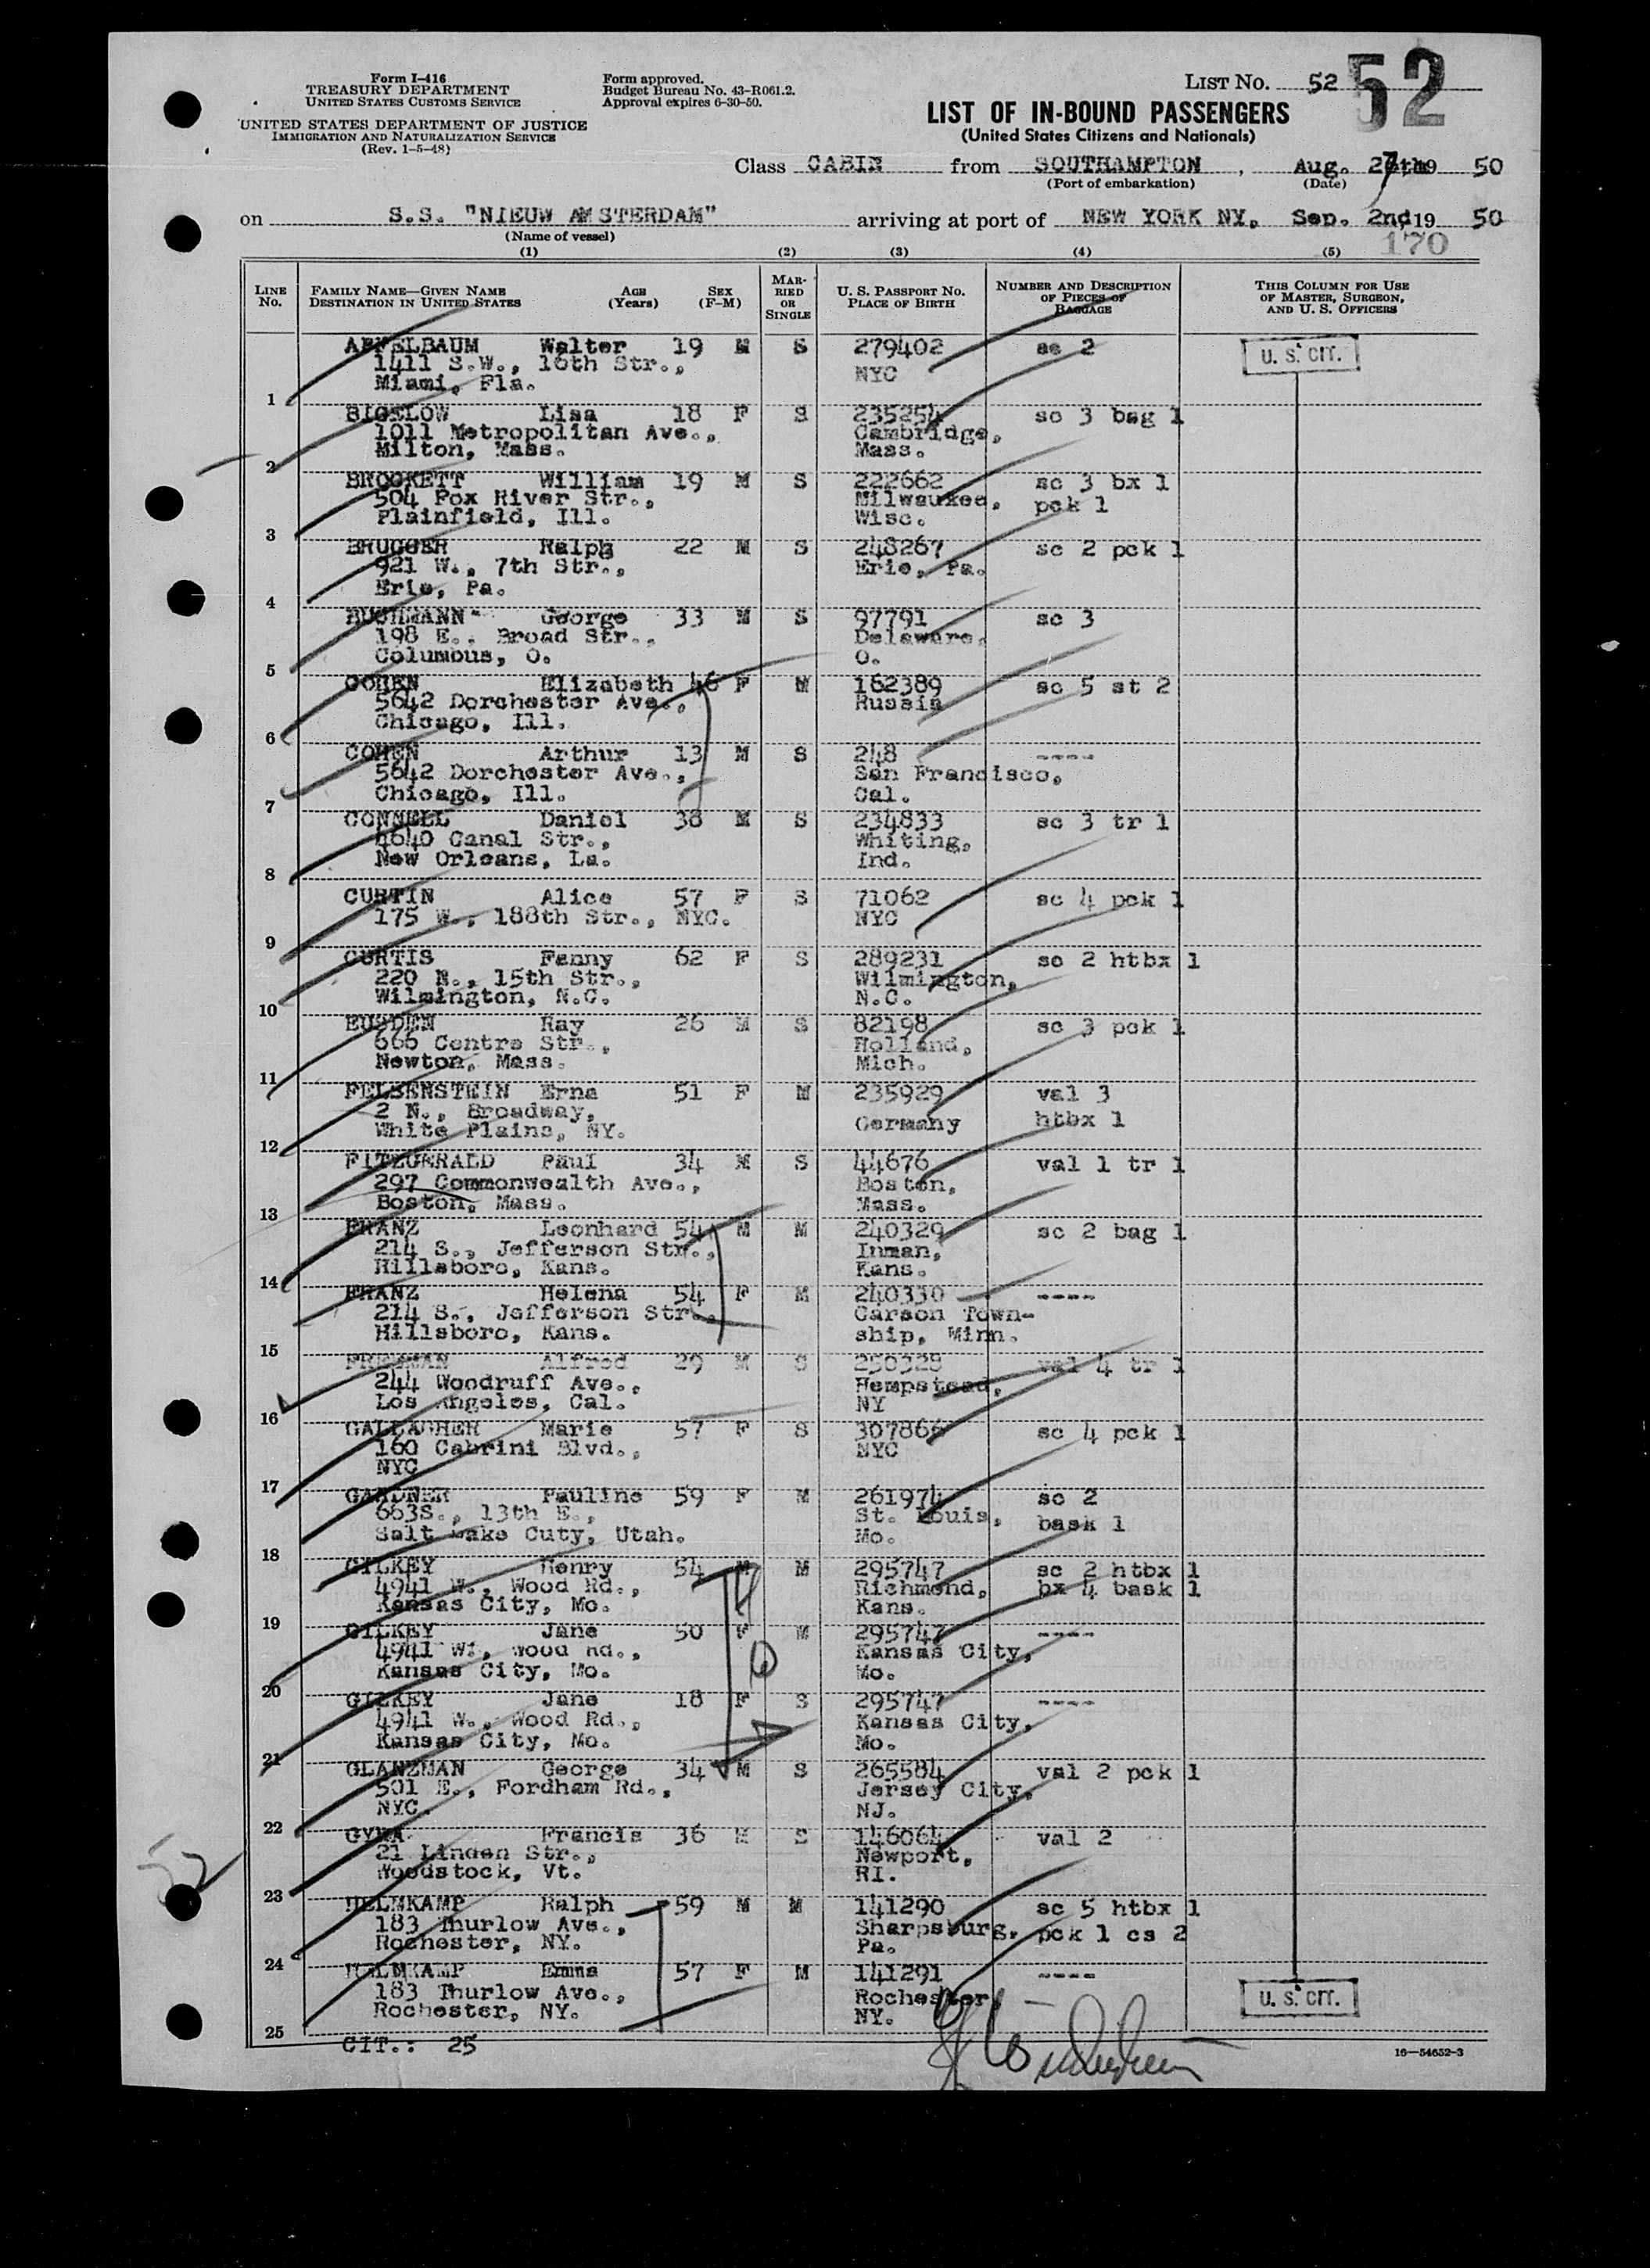 Form I-416
TREASURY DEPARTMENT
UNITED STATES CUSTOMS SERVICE
UNITED STATES DEPARTMENT OF JUSTICE
IMMIGRATION AND NATURALIZATION SERVICE
(Rev. 1-5-48)
Form approved.
Budget Bureau No. 43-R061.2.
Approval expires 6-30-50.
LIST NO. 52 52
LIST OF IN-BOUND PASSENGERS
(United States Citizens and Nationals)
Class CABIN from SOUTHAMPTON, Aug. 27th 19 50
(Port of embarkation) (Date)
on S.S. "NIEUW AMSTERDAM" arriving at port of NEW YORK NY, Sep. 2nd, 19 50
(Name of vessel) 170
(1) (2) (3) (4) (5)
LINE No. FAMILY NAME—GIVEN NAME DESTINATION IN UNITED STATES AGE (Years) SEX (F-M) MARRIED OR SINGLE U. S. PASSPORT NO. PLACE OF BIRTH NUMBER AND DESCRIPTION OF PIECES OF BAGGAGE THIS COLUMN FOR USE OF MASTER, SURGEON, AND U. S. OFFICERS
APFELBAUM Walter 19 M S 279402 sc 2 U. S. CIT.
1411 S.W., 16th Str., NYC
Miami, Fla.
1
BIGELOW Lisa 18 F S 235254 sc 3 bag 1
1011 Metropolitan Ave., Cambridge,
Milton, Mass. Mass.
2
BROCKETT William 19 M S 222662 sc 3 bx 1
504 Fox River Str., Milwaukee, pck 1
Plainfield, Ill. Wisc.
3
BRUGGER Ralph 22 M S 248267 sc 2 pck 1
921 W., 7th Str., Erie, Pa.
Erie, Pa.
4
BUCHMANN George 33 M S 97791 sc 3
198 E., Broad Str., Delaware,
Columbus, O. O.
5
COHEN Elizabeth 46 F M 162389 sc 5 st 2
5642 Dorchester Ave., Russia
Chicago, Ill.
6
COHEN Arthur 13 M S 248 ----
5642 Dorchester Ave., San Francisco,
Chicago, Ill. Cal.
7
CONNELL Daniel 38 M S 234833 sc 3 tr 1
4640 Canal Str., Whiting,
New Orleans, La. Ind.
8
CURTIN Alice 57 F S 71062 sc 4 pck 1
175 W., 188th Str., NYC. NYC
9
CURTIS Fanny 62 F S 289231 sc 2 htbx 1
220 N., 15th Str., Wilmington,
Wilmington, N.C. N.C.
10
EUSDEN Ray 26 M S 82198 sc 3 pck 1
666 Centre Str., Holland,
Newton, Mass. Mich.
11
FELSENSTEIN Erna 51 F M 235929 val 3
2 N., Broadway, Germany htbx 1
White Plains, NY.
12
FITZGERALD Paul 34 M S 44676 val 1 tr 1
297 Commonwealth Ave., Boston,
Boston, Mass. Mass.
13
FRANZ Leonhard 54 M M 240329 sc 2 bag 1
214 S., Jefferson Str., Inman,
Hillsboro, Kans. Kans.
14
FRANZ Helena 54 F M 240330 ----
214 S., Jefferson Str., Carson Town-
Hillsboro, Kans. ship, Minn.
15
FREEMAN Alfred 29 M S 250328 val 4 tr 1
244 Woodruff Ave., Hempstead,
Los Angeles, Cal. NY
16
GALLAGHER Marie 57 F S 307866 sc 4 pck 1
160 Cabrini Blvd., NYC
NYC
17
GARDNER Pauline 59 F M 261974 sc 2
663S., 13th E., St. Louis, bask 1
Salt Lake Cuty, Utah. Mo.
18
GILKEY Henry 54 M M 295747 sc 2 htbx 1
4941 W., Wood Rd., Richmond, bx 4 bask 1
Kansas City, Mo. Kans.
19
GILKEY Jane 50 F M 295747 ----
4941 W., Wood Rd., Kansas City,
Kansas City, Mo. Mo.
20
GILKEY Jane 18 F S 295747 ----
4941 W., Wood Rd., Kansas City,
Kansas City, Mo. Mo.
21
GLANZMAN George 34 M S 265584 val 2 pck 1
501 E., Fordham Rd., Jersey City,
NYC. NJ.
22
GYRA Francis 36 M S 146064 val 2
21 Linden Str., Newport,
Woodstock, Vt. RI.
23
52
HELMKAMP Ralph 59 M M 141290 sc 5 htbx 1
183 Thurlow Ave., Sharpsburg, pck 1 cs 2
Rochester, NY. Pa.
24
HELMKAMP Emma 57 F M 141291 ----
183 Thurlow Ave., Rochester U. S. CIT.
Rochester, NY. NY.
25
CIT.: 25
16—54652-3